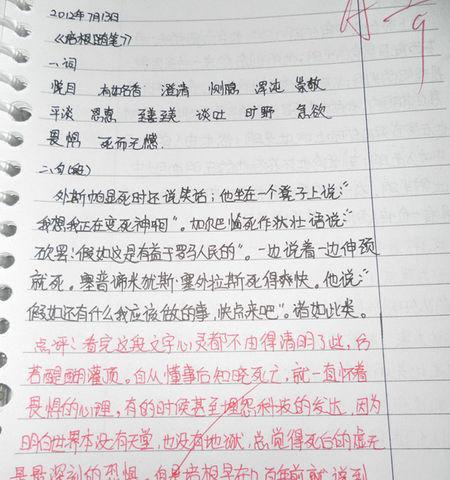 2012年7月13日
《培根随笔》
一、词
悦目 有如名香 澄清 恻隐 浑沌 崇敬
平淡 恩惠 臻臻 谈吐 旷野 急欲
畏惧 死而无憾
二、句(段)
外斯帕显死时还说笑话;他坐在一个凳子上说:“
我想我正在变死神啊”。加尔巴临死作状壮语说:“
砍罢!假如这是有益于罗马人民的”。一边说着一边伸颈
就死。塞普谛米犹斯·塞外拉斯死得爽快。他说:“
假如还有什么我应该做的事,快点来吧”。诸如此类。
点评:看完这段文字心灵都不由得清明了些,仿
若醍醐灌顶。自从懂事后知晓死亡,就一直怀着
畏惧的心理,有的时候甚至埋怨科技的发达,因为
明白世界本没有天堂,也没有地狱,总觉得死后的虚无
是最深刻的恐惧。但是培根早在几百年前就谈到